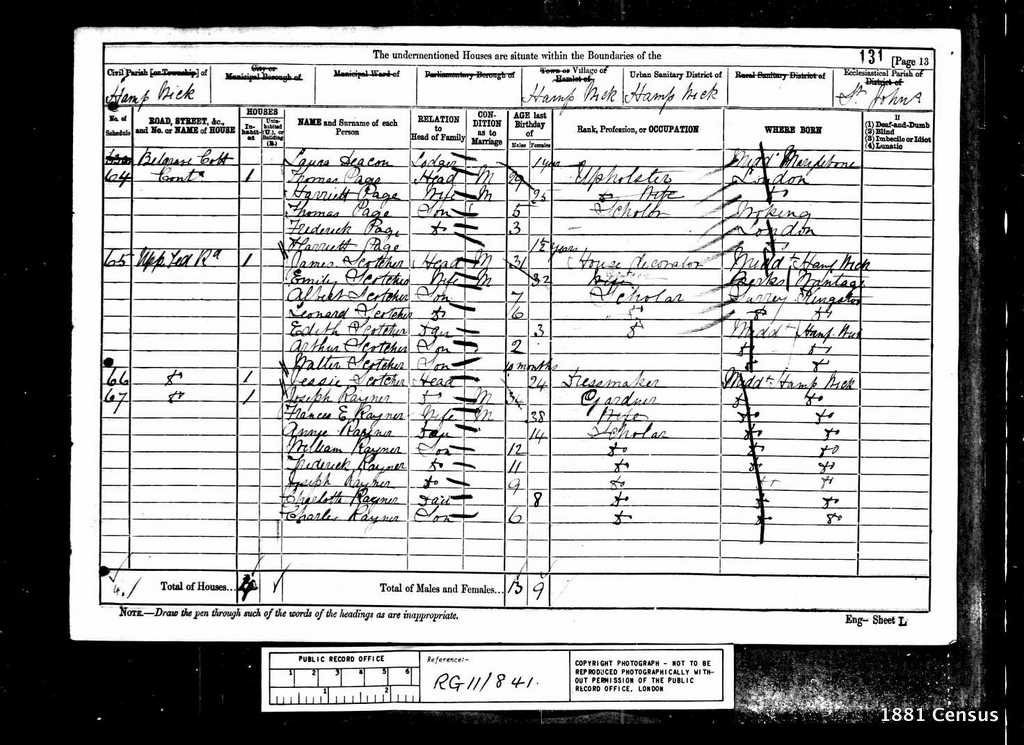 The undermentioned Houses are situate within the Boundaries of the
131 [Page 13
Civil Parish [or Township] of City or Municipal Borough of Municipal Ward of Parliamentary Borough of Town or Village of Hamlet of Urban Sanitary District of Rural Sanitary District of Ecclesiastical Parish of District of
Hamp Wick Hamp Wick Hamp Wick St. Johns
No. of Schedule ROAD, STREET, &c., and No. or NAME of HOUSE HOUSES Inhabited Uninhabited (U.), or Building (B.) NAME and Surname of each Person RELATION to Head of Family CONDITION as to Marriage AGE last Birthday of Males Females Rank, Profession, or OCCUPATION WHERE BORN If (1) Deaf-and-Dumb (2) Blind (3) Imbecile or Idiot (4) Lunatic
Belgrave Cott Laura Deacon Lodger 1 year Midd Marylebone
64 Cont 1 Thomas Page Head M 29 Upholster London
Harriett Page Wife M 25 do Wife do
Thomas Page Son 5 Scholar Woking
Frederick Page do 3 – London
Harriett Page
65 Upp Ted Rd 1 James Scotcher Head M 31 House decorator Midd Hamp Wick
Emily Scotcher Wife M 32 Wife Berks Wantage
Albert Scotcher Son 7 Scholar Surrey Kingston
Leonard Scotcher do 6 do do do
Edith Scotcher Dau 3 do Midd Hamp Wick
Arthur Scotcher Son 2 do do
Walter Scotcher Son 10 months do do
66 do 1 Jessie Scotcher Head 24 Dressmaker Midd Hamp Wick
67 do 1 Joseph Rayner do M Gardner do do
Frances E Rayner Wife M 38 Wife do do
Annie Rayner Dau 14 Scholar do do
William Rayner Son 12 do do do
Frederick Rayner do 11 do do do
Joseph Rayner do 9 do do do
Charlotte Rayner Dau 8 do do do
Charles Rayner Son 6 do do do
4 Total of Houses... 4 Total of Males and Females... 13 9
NOTE.—Draw the pen through such of the words of the headings as are inappropriate.
Eng— Sheet L
PUBLIC RECORD OFFICE
1 2 3 4 5 6
1 2
Reference:-
RG 11/841.
COPYRIGHT PHOTOGRAPH - NOT TO BE REPRODUCED PHOTOGRAPHICALLY WITHOUT PERMISSION OF THE PUBLIC RECORD OFFICE, LONDON
1881 Census